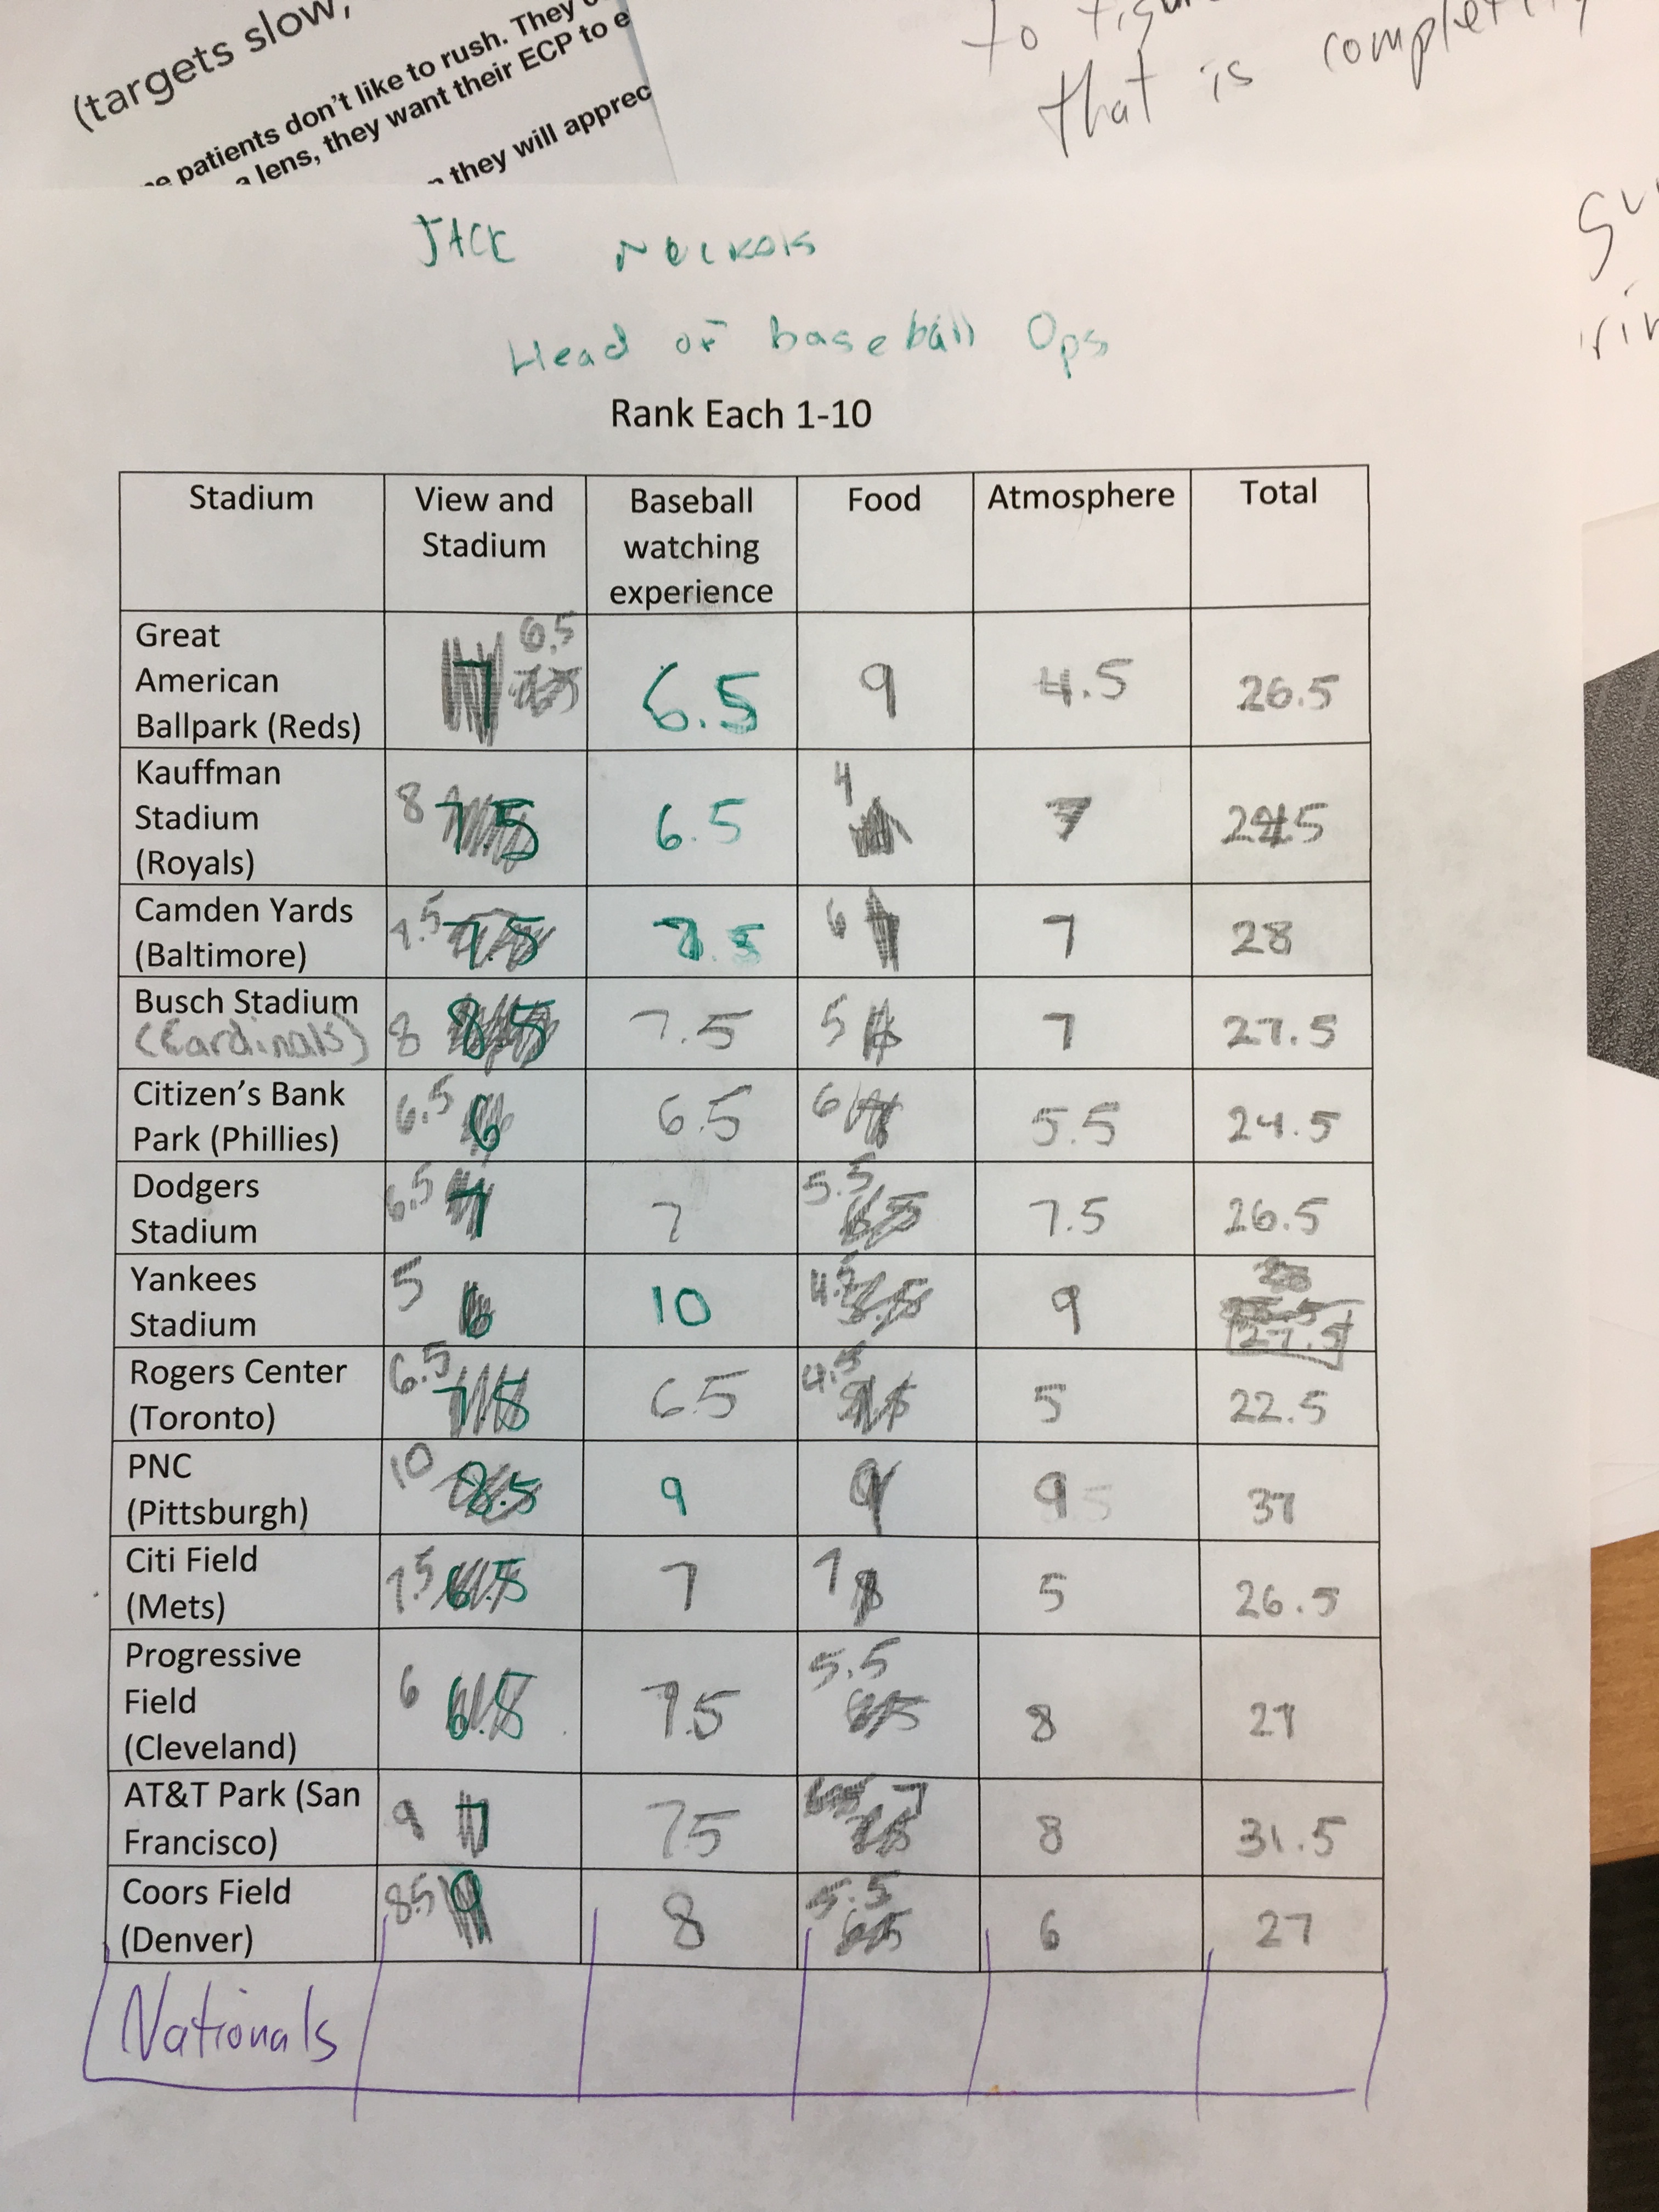 (targets slow,
patients don't like to rush. They
lens, they want their ECP to e
they will apprec
to
that is
JACK
Head of baseball Ops
Rank Each 1-10
Stadium View and Stadium Baseball watching experience Food Atmosphere Total
Great American Ballpark (Reds) 7 6.5 6.5 9 4.5 26.5
Kauffman Stadium (Royals) 8 7.5 6.5 4 7 24.5
Camden Yards (Baltimore) 7.5 7.5 7.5 6 7 28
Busch Stadium (Cardinals) 8 8.5 7.5 5 7 27.5
Citizen's Bank Park (Phillies) 6.5 6 6.5 6 5.5 24.5
Dodgers Stadium 6.5 7 7 5.5 7.5 26.5
Yankees Stadium 5 6 10 9 27.5
Rogers Center (Toronto) 6.5 7.5 6.5 4.5 5 22.5
PNC (Pittsburgh) 10 8.5 9 9 9 37
Citi Field (Mets) 7.5 6.5 7 7 8 5 26.5
Progressive Field (Cleveland) 6 6.5 7.5 5.5 8 27
AT&T Park (San Francisco) 9 7 7.5 7 8 31.5
Coors Field (Denver) 8.5 9 8 5.5 6 27
Nationals